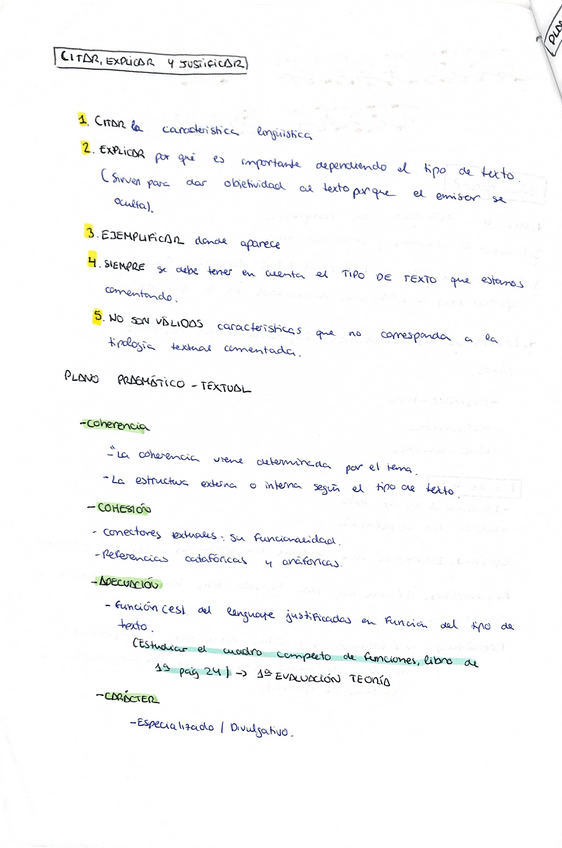 PLAN
CITAR, EXPLICAR Y JUSTIFICAR
1. CITAR la característica lingüística
2. EXPLICAR por qué es importante dependiendo el tipo de texto.
(Sirven para dar objetividad al texto porque el emisor se
oculta).
3. EJEMPLIFICAR donde aparece
4. SIEMPRE se debe tener en cuenta el TIPO DE TEXTO que estamos
comentando.
5. NO SON VÁLIDOS características que no corresponda a la
tipología textual comentada.
PLANO PRAGMÁTICO - TEXTUAL
- Coherencia
- La coherencia viene determinada por el tema.
- La estructura externa o interna según el tipo de texto.
- COHESIÓN
- conectores textuales: su funcionalidad.
- Referencias catafóricas y anáforicas.
- ADECUACIÓN
- función (es) del lenguaje justificadas en función del tipo de
texto.
(Estudiar el cuadro completo de funciones, libro de
1º pág 24) → 1ª EVALUACIÓN TEORÍA
- CARÁCTER
- Especializado / Divulgativo.